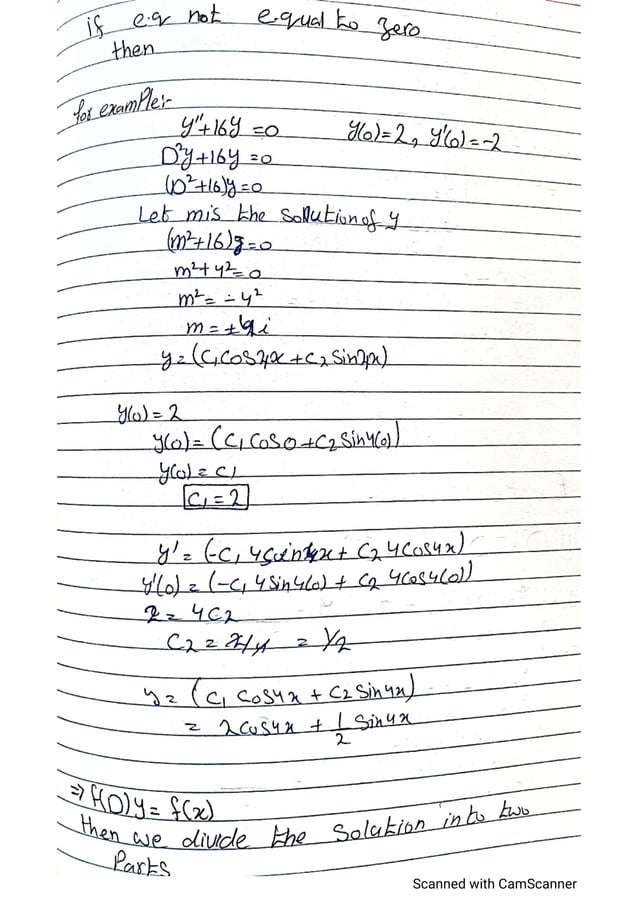 if e.q not equal to zero
then
for example:-
y''+16y =0 y(0)=2, y'(0)=-2
D²y+16y =0
(D²+16)y=0
Let m is the sollution of y
(m²+16)y=0
m²+4²=0
m²= -4²
m=±4i
y=(C₁Cos4x+C₂Sin4x)
y(0)=2
y(0)=(C₁Cos0+C₂Sin4(0))
y(0)=C₁
C₁=2
y'=(-C₁4Sin4x+C₂4Cos4x)
y'(0)=(-C₁4Sin4(0)+C₂4Cos4(0))
2=4C₂
C₂=2/4 = 1/2
y=(C₁Cos4x+C₂Sin4x)
= 2Cos4x + 1/2 Sin4x
⇒ f(D)y= f(x)
then we divide the Solution into two
Parts
Scanned with CamScanner